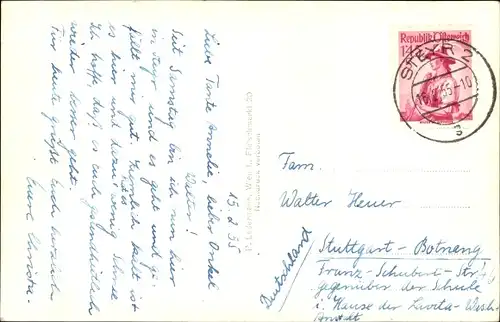 15.2.55
Liebe Tante Amelie, lieber Onkel
Walter!
Seit Samstag bin ich nun hier
in Steyr und es geht und ge-
fällt mir gut. Ziemlich kalt ist
es hier und kaum wenig Schnee
Ich hoffe, daß es euch gesundheitlich
wieder besser geht.
Für heute grüßt Euch herzlich
Eure Christa.
P. Ledermann, Wien I., Fleischmarkt 20
Nachdruck verboten
Republik Österreich
STEYR 2
55-10
Fam.
Walter Heuer
Stuttgart-Botnang
Franz-Schubert-Str.
gegenüber der Schule
i. Hause der
Anstalt
Deutschland